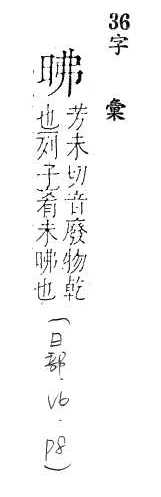 36
字彙
昲
芳未切音廢物乾
也列子肴未昲也
(日部.V6.P8)